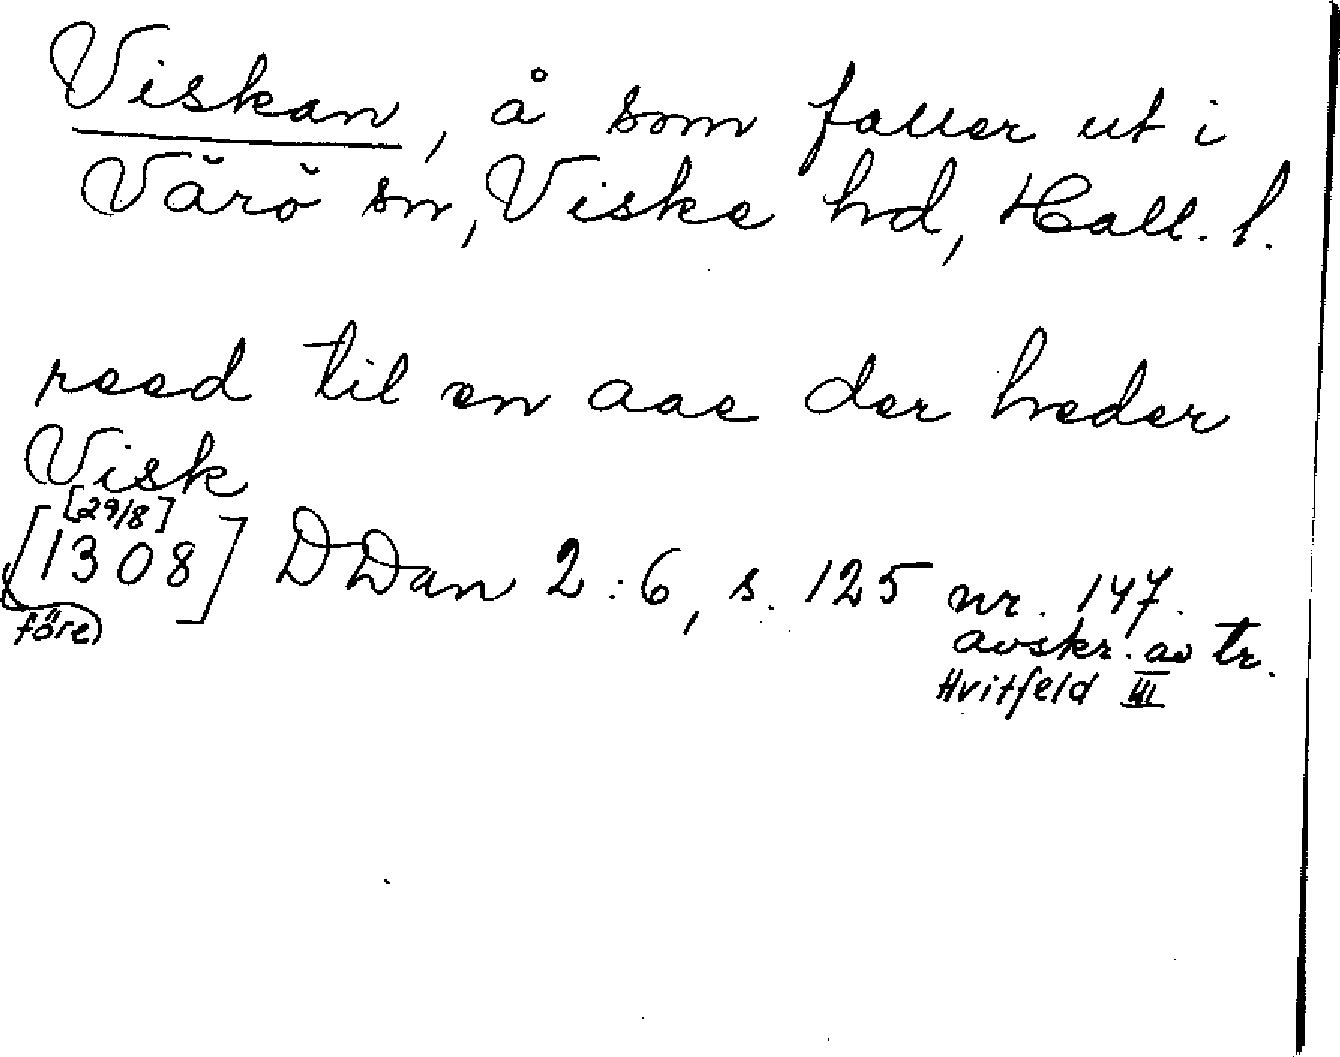 Viskan, å som faller ut i
Värö sn, Viske hd, Hall. l.
reed til en aae der heder
Visk
[29/8]
[1308] DDan 2:6, s. 125 nr. 147.
före
avskr. av tr.
Hvitfeld III